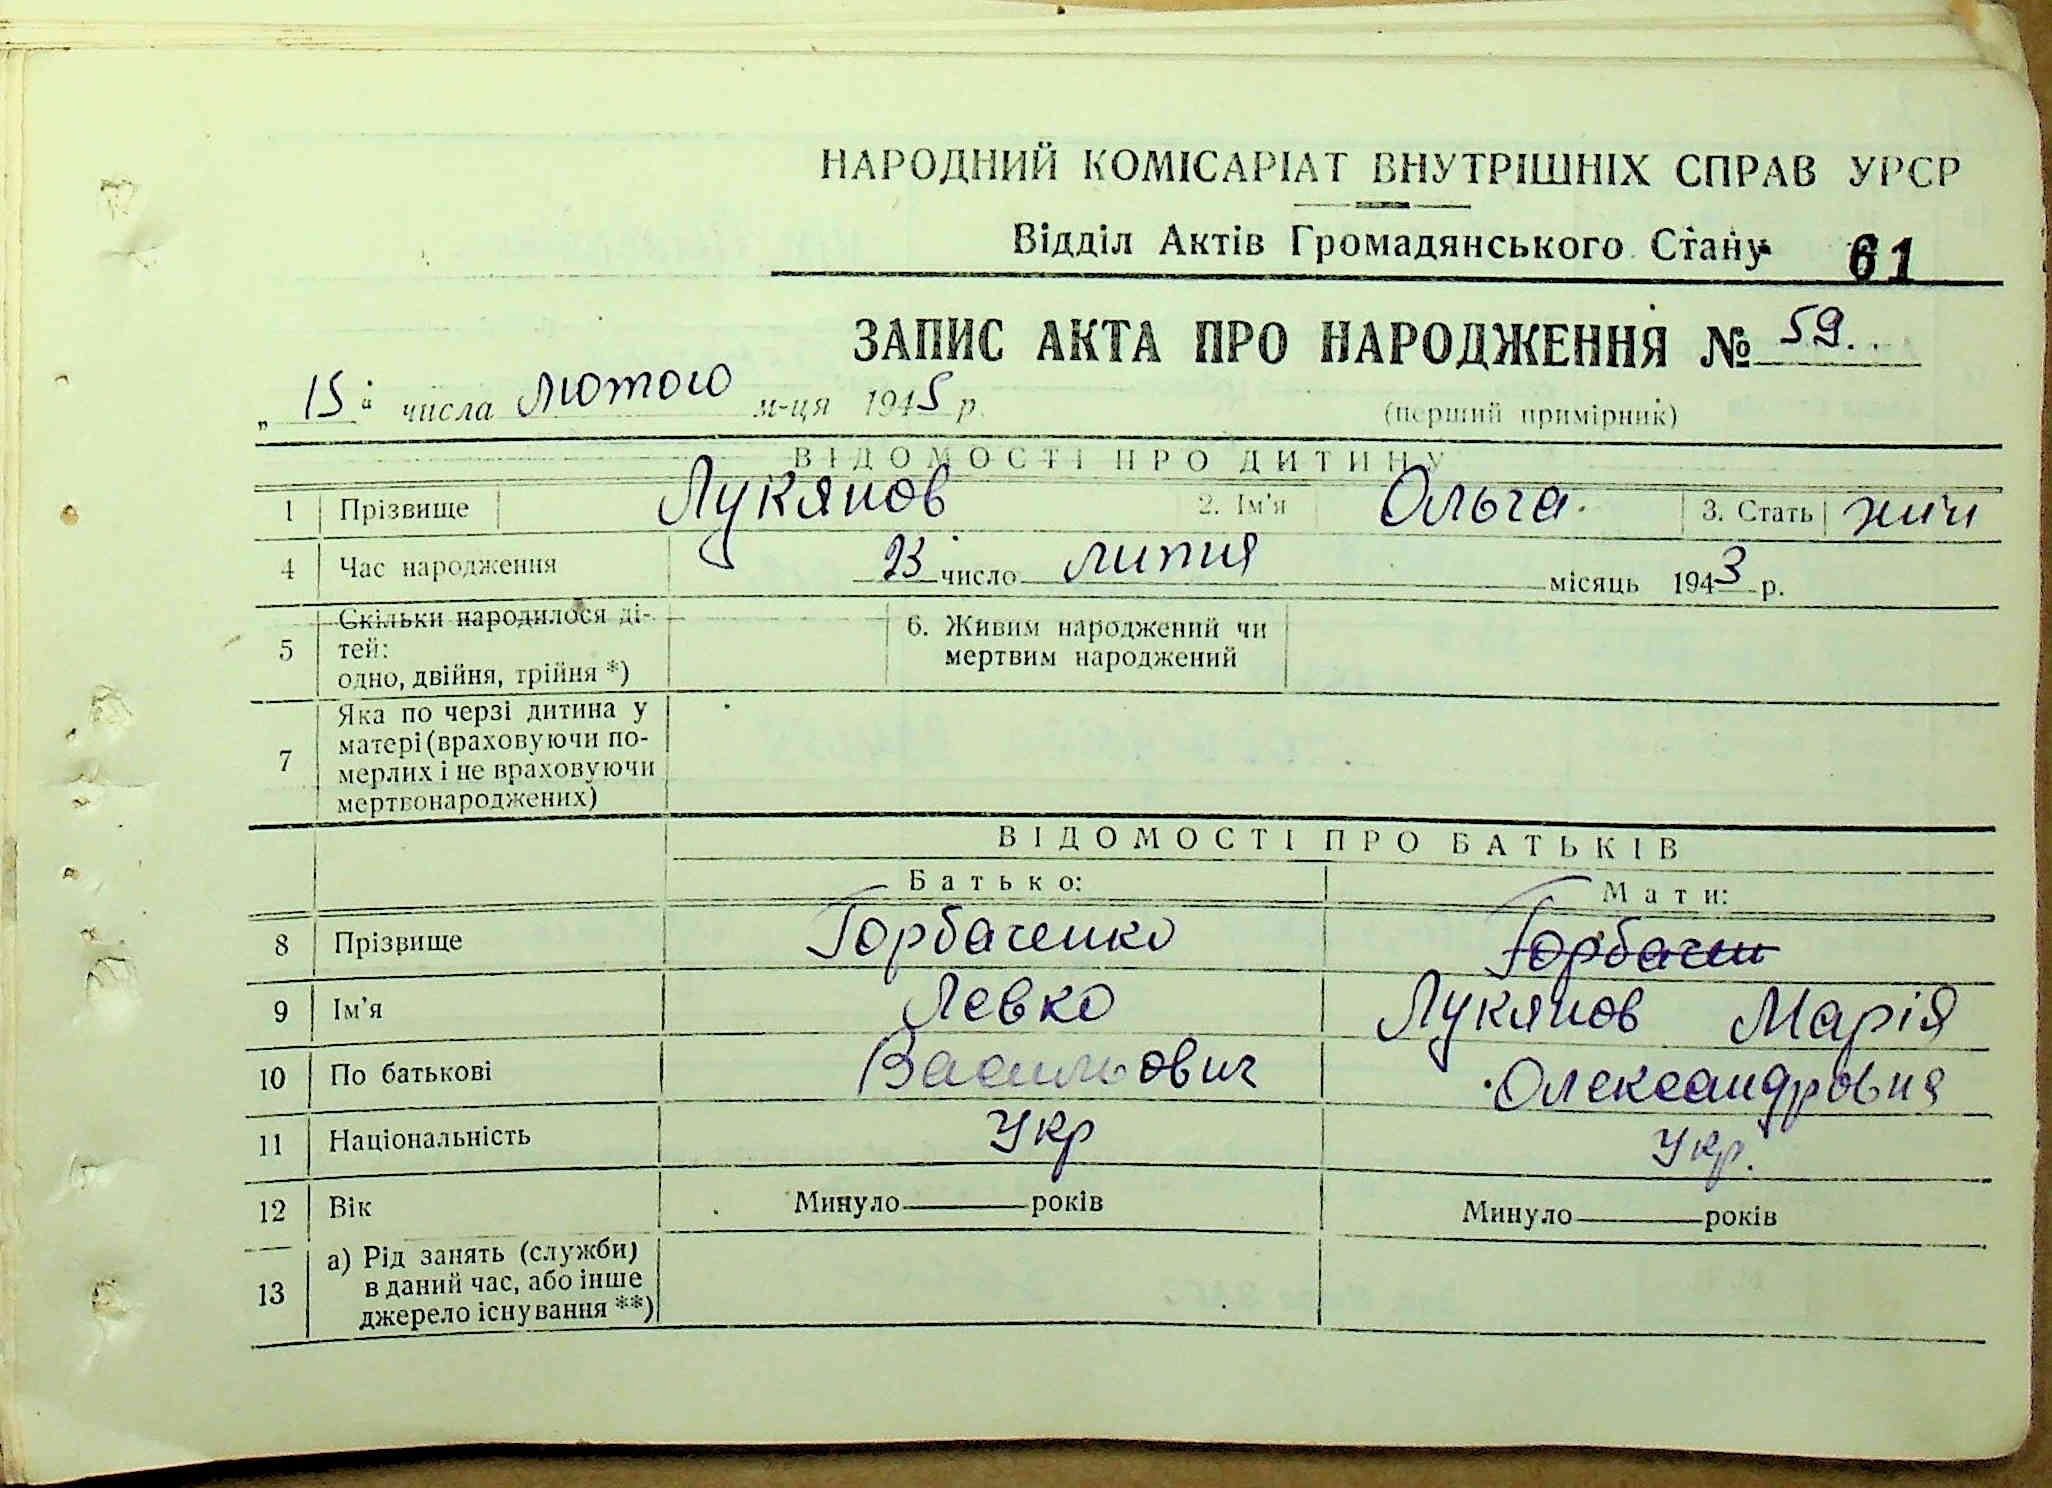 НАРОДНИЙ КОМІСАРІАТ ВНУТРІШНІХ СПРАВ УРСР
Відділ Актів Громадянського Стану 61
ЗАПИС АКТА ПРО НАРОДЖЕННЯ № 59.
„ 15 “ числа лютого м-ця 1945 р.
(перший примірник)
ВІДОМОСТІ ПРО ДИТИНУ
1 Прізвище Лукянов 2. Ім'я Ольга. 3. Стать жін
4 Час народження 23 число липня місяць 1943 р.
5 Скільки народилося ді-
тей:
одно, двійня, трійня *)
6. Живим народжений чи
мертвим народжений
7 Яка по черзі дитина у
матері (враховуючи по-
мерлих і не враховуючи
мертвонароджених)
ВІДОМОСТІ ПРО БАТЬКІВ
Батько: Мати:
8 Прізвище Горбаченко Горбачен
9 Ім'я Левко Лукянов Марія
10 По батькові Васильович Олександровна
11 Національність Укр Укр.
12 Вік Минуло років Минуло років
13 а) Рід занять (служби)
в даний час, або інше
джерело існування **)